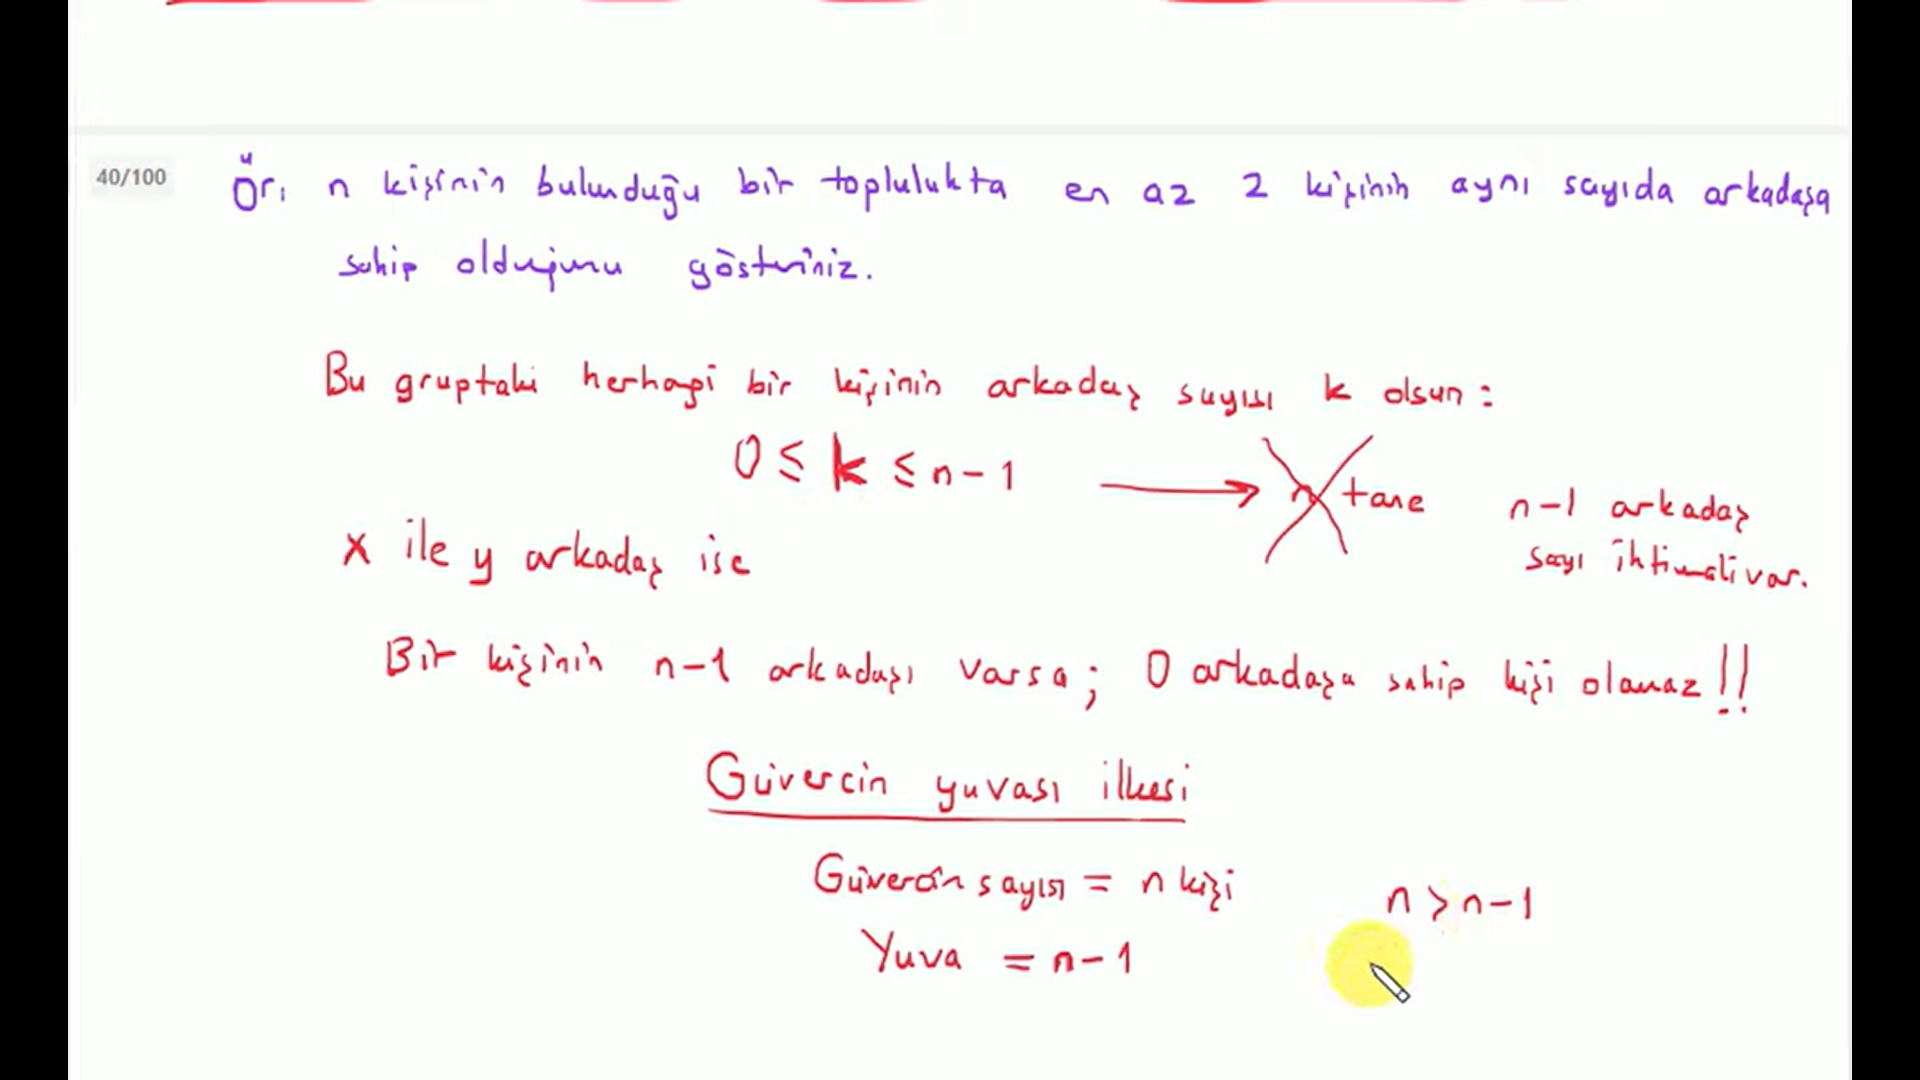 40/100
Ör, n kişinin bulunduğu bir toplulukta en az 2 kişinin aynı sayıda arkadaşa
sahip olduğunu gösteriniz.
Bu gruptaki herhagi bir kişinin arkadaş sayısı k olsun:
0 ≤ k ≤ n-1 → n tane
n-1 arkadaş
sayı ihtimali var.
x ile y arkadaş ise
Bir kişinin n-1 arkadaşı varsa; 0 arkadaşa sahip kişi olamaz!!
Güvercin yuvası ilkesi
Güvercin sayısı = n kişi
n > n-1
Yuva = n-1